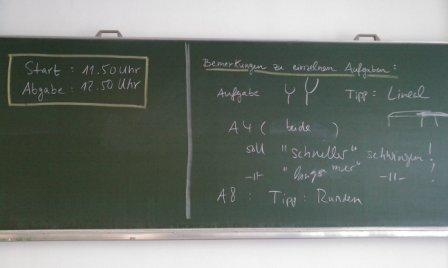 Start : 11.50 Uhr
Abgabe : 12.50 Uhr
Bemerkungen zu einzelnen Aufgaben :
Aufgabe Tipp : Lineal
A4 ( beide )
soll "schneller" schwingen !
-"- "langsamer" -"- !
A8 : Tipp : Runden